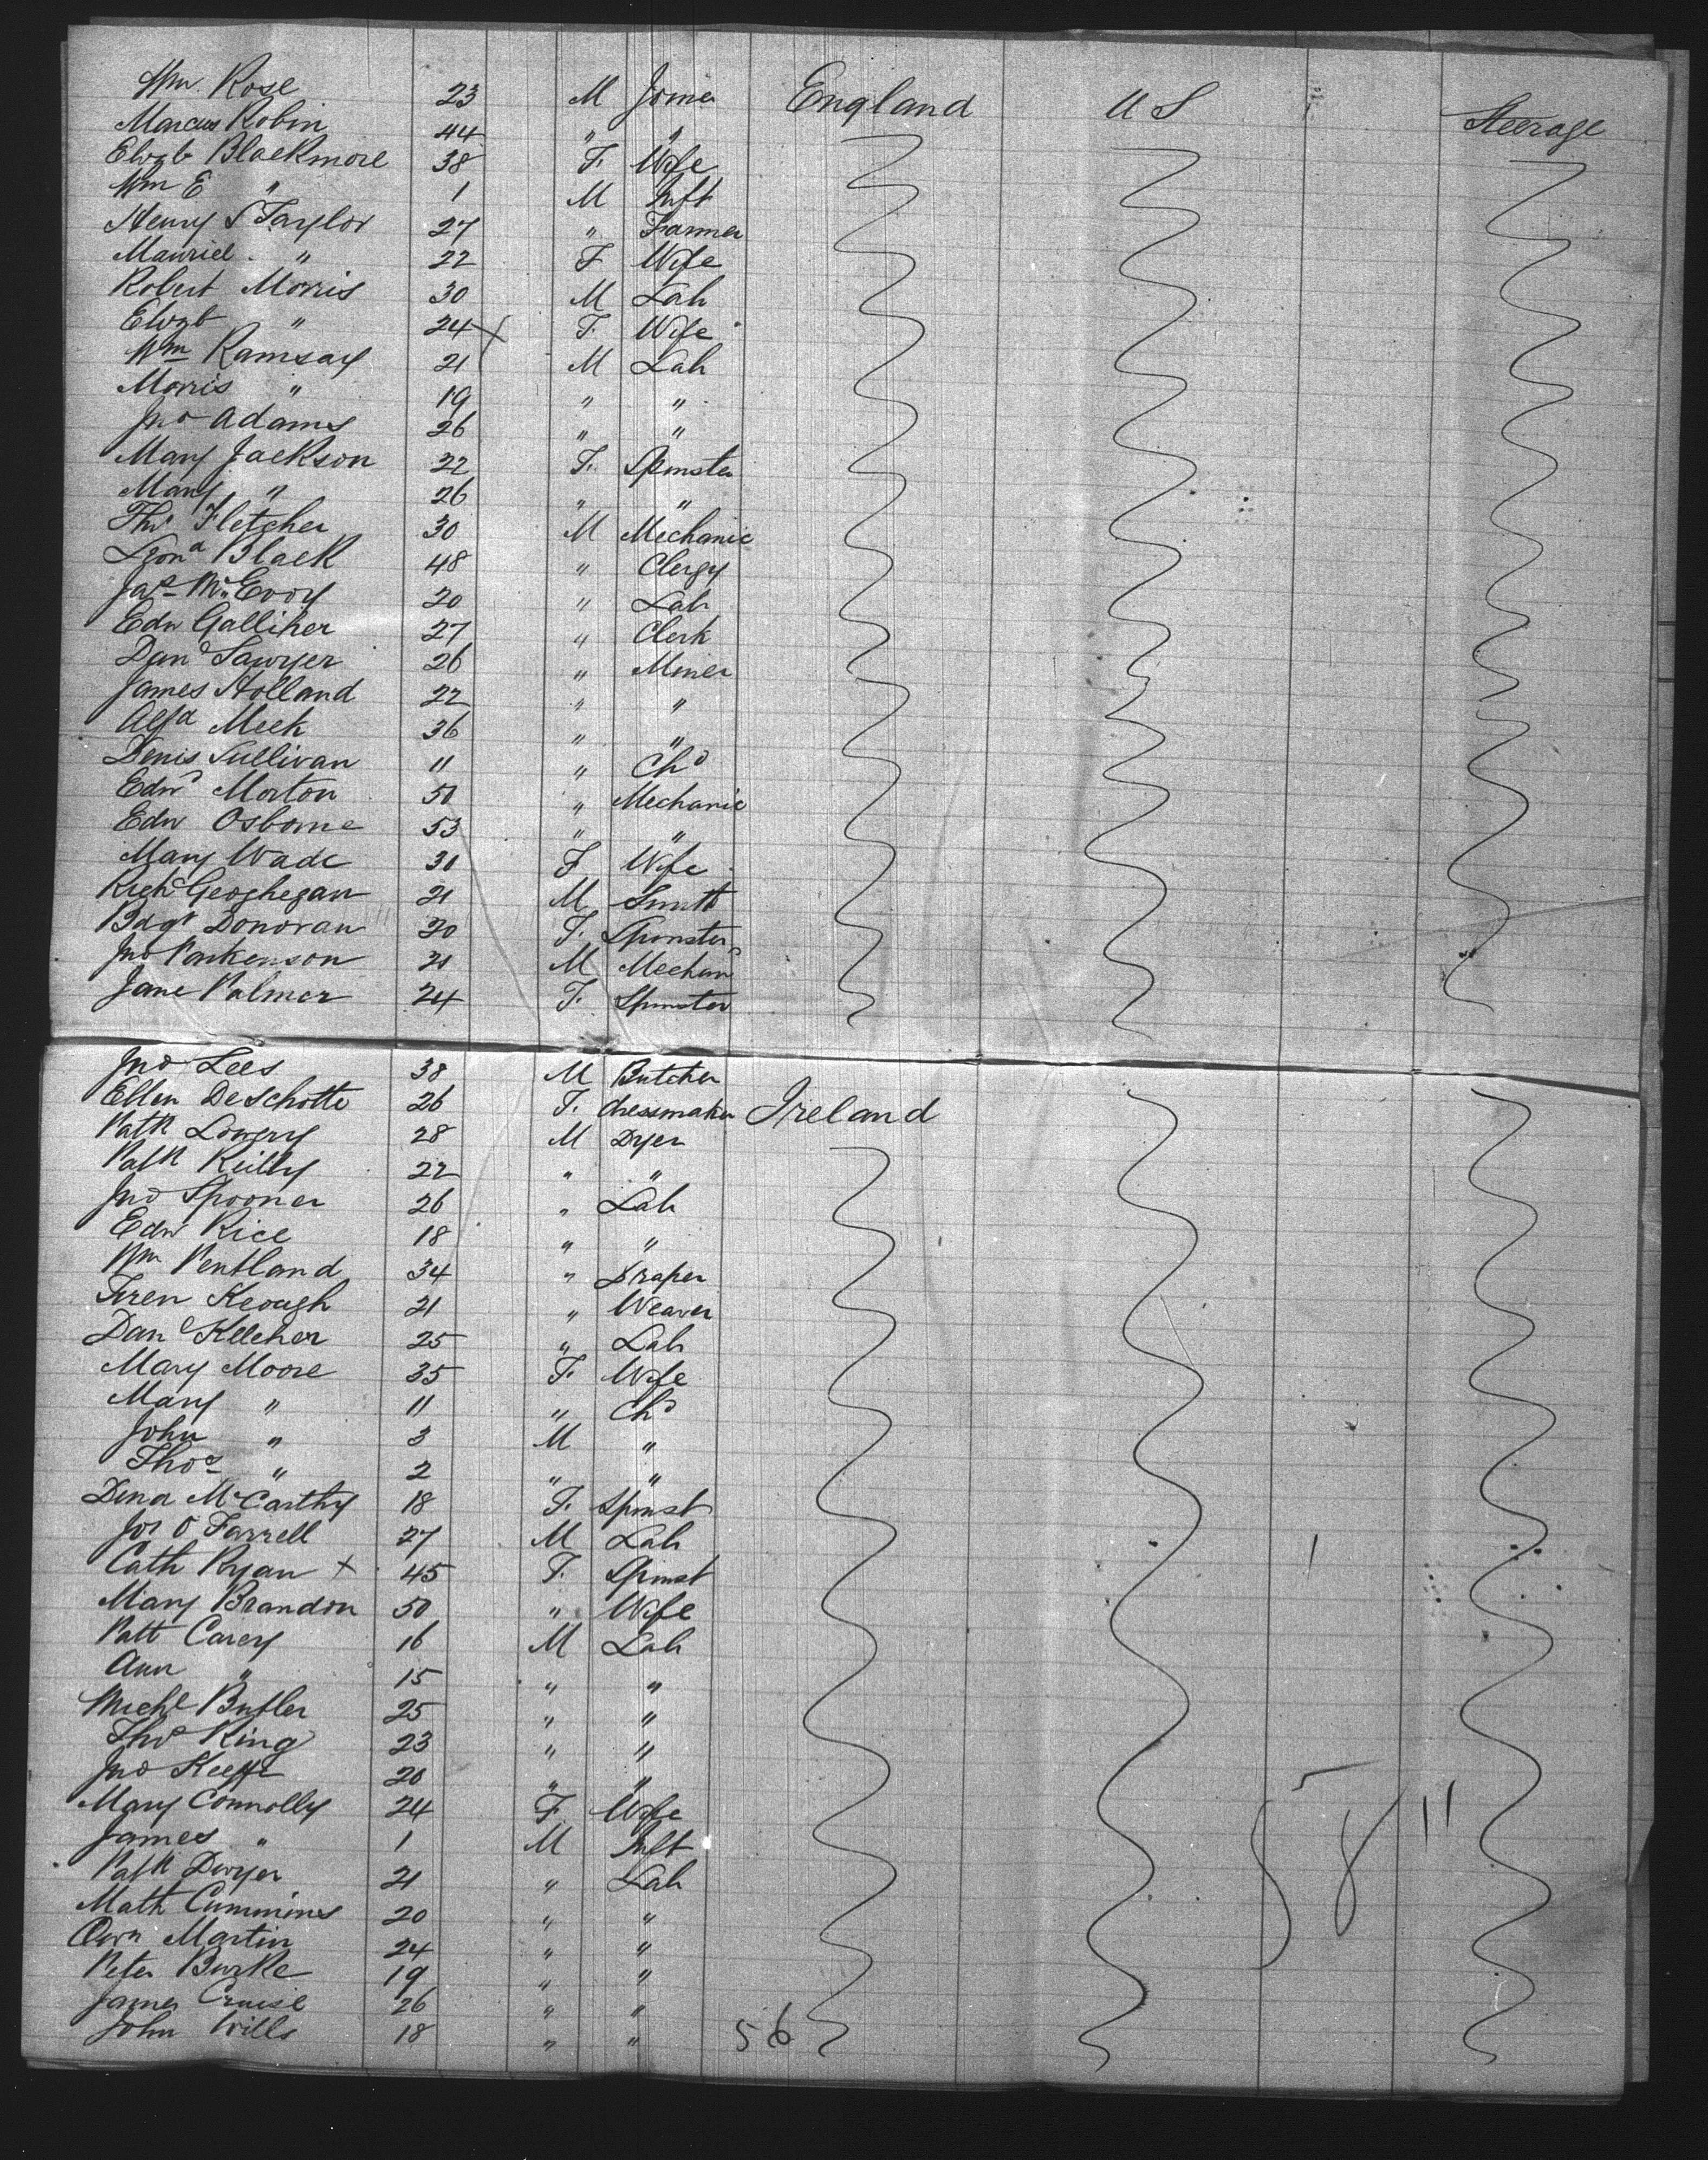 Wm. Rose 23 M Joiner England U S Steerage
Marcus Robin 44 " "
Elizb Blackmore 38 F. Wife
Wm E " 1 M Inft
Henry S Taylor 27 " Farmer
Mauriel " 22 F Wife
Robert Morris 30 M Lab
Elizb " 24 F. Wife
Wm Ramsay 21 M Lab
Morris " 19 " "
Jno Adams 26 " "
Mary Jackson 22 F. Spinster
Mary " 26 " "
Thos Fletcher 30 M Mechanic
Leona Black 48 " Clergy
Jas McEvoy 20 " Lab
Edw Galliher 27 " Clerk
Danl Sawyer 26 " Miner
James Holland 22 " "
Alfd Meek 36 " "
Denis Sullivan 11 " Chd
Edwd Morton 50 " Mechanic
Edw Osborne 53 " "
Mary Wade 30 F Wife
Richd Geoghegan 21 M Smith
Bagt Donovan 20 F. Spinster
Jno Parkenson 21 M Mechan
Jane Palmer 24 F. Spinster
Jno Lees 38 M Butcher
Ellen DeSchotte 26 F. dressmaker Ireland
Patk Lowery 28 M Dyer
Patk Reilly 22 " "
Jno Spooner 26 " Lab
Edw Rice 18 " "
Wm Pentland 34 " Draper
Keough 21 " Weaver
Danl Kelcher 25 " Lab
Mary Moore 35 F. Wife
Mary " 11 " Chd
John " 3 M "
Thos " 2 " "
Dena McCarthy 18 F. Spinst
Jos O Farrell 27 M Lab
Cath Ryan x 45 F. Spinst
Mary Brandon 50 " Wife
Patt Carey 16 M Lab
Ann " 15 " "
Michl Butler 25 " "
Thos King 23 " "
Jno Keeffe 20 " "
Mary Connolly 24 F Wife
James " 1 M Inft
Patk Dwyer 21 " Lab
Math Cummins 20 " "
Own Martin 24 " "
Peter Burke 19 " "
James Cruise 26 " "
John Wills 18 " "
56
58 11